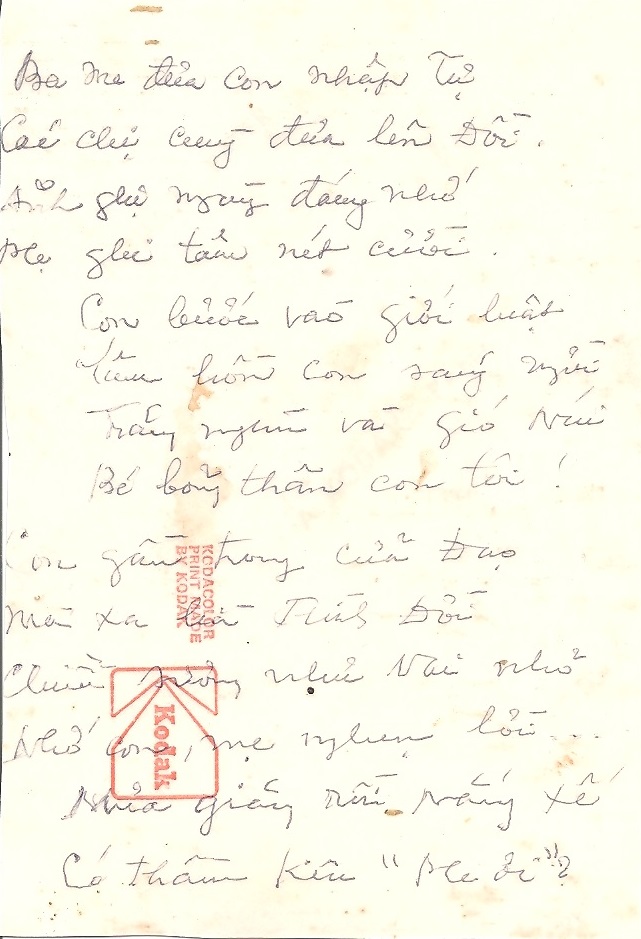 Ba mẹ đưa con nhập Tự
Các chị cũng đưa lên Đồi.
Ảnh ghi ngày đáng nhớ
Mẹ ghi tâm nét cười.
Con bước vào giới luật
Tâm hồn con sáng ngời
Trăng ngàn và gió Núi
Bế bồng thân con tôi !
Con gần trong cửa Đạo
Mà xa Tình Đời
Chiều xuống như Núi nhỏ
Nhớ con, mẹ nghẹn lời...
giấng nắng xế
Có thầm kêu "Mẹ ơi"?
KODACOLOR
PRINT MADE
BY KODAK
Kodak